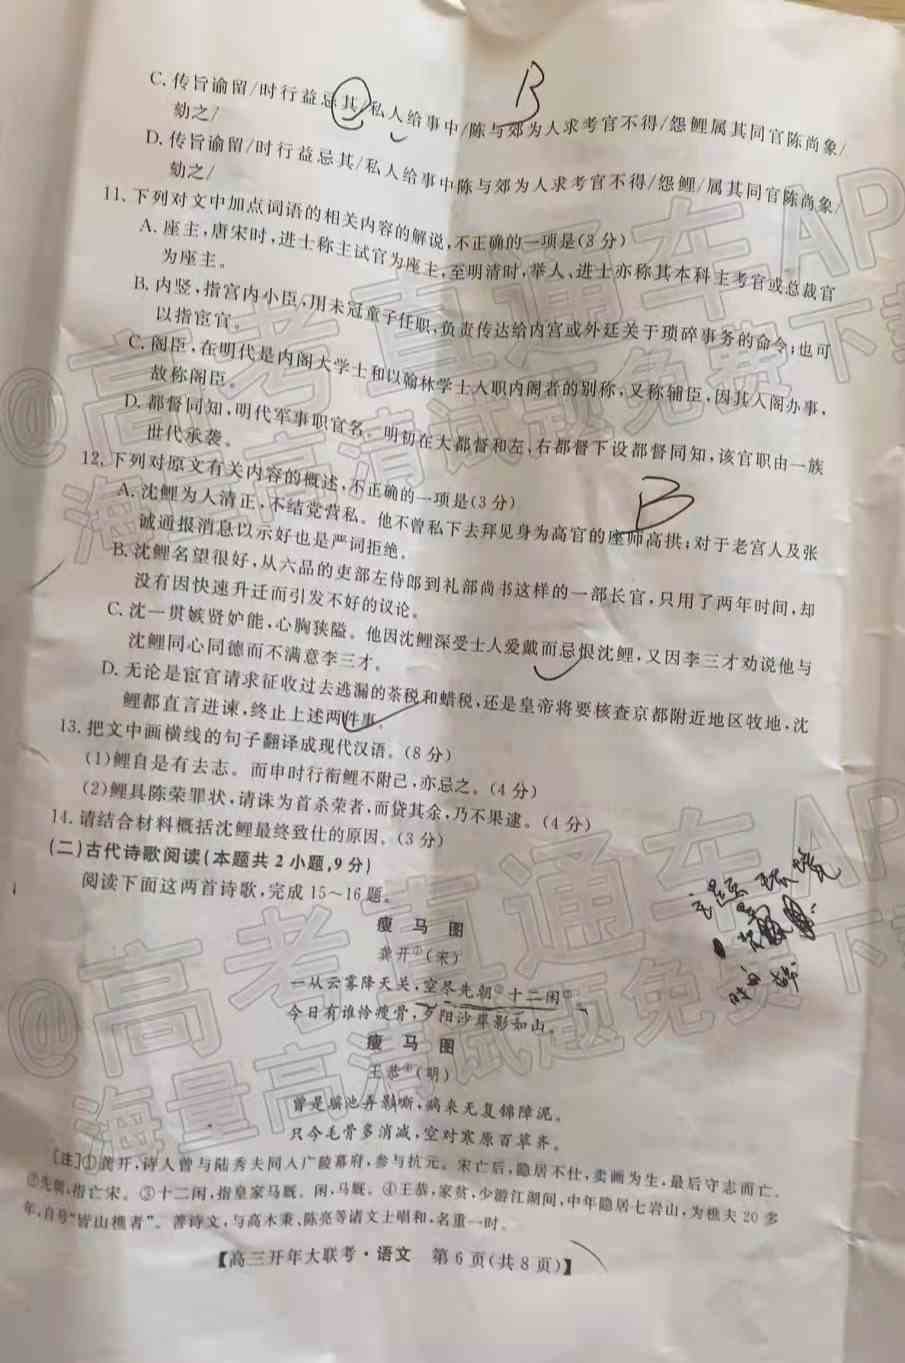 C. 传旨谕留/时行益忌其/私人给事中/陈与郊为人求考官不得/怨鲤属其同官陈尚象/
劾之/
D. 传旨谕留/时行益忌其/私人给事中陈与郊为人求考官不得/怨鲤/属其同官陈尚象/
劾之/
B
11、下列对文中加点词语的相关内容的解说,不正确的一项是(3分)
A. 座主,唐宋时,进士称主试官为座主,至明清时,举人、进士亦称其本科主考官或总裁官
为座主。
B. 内竖,指宫内小臣,用未冠童子任职,负责传达给内宫或外廷关于琐碎事务的命令;也可
以指宦官。
C. 阁臣,在明代是内阁大学士和以翰林学士入职内阁者的别称,又称辅臣,因其入阁办事,
故称阁臣。
D. 都督同知,明代军事职官名。明初在大都督和左、右都督下设都督同知,该官职由一族
世代承袭。
12. 下列对原文有关内容的概述,不正确的一项是(3分)
B
A. 沈鲤为人清正,不结党营私。他不曾私下去拜见身为高官的座师高拱;对于老宫人及张
诚通报消息以示好也是严词拒绝。
B. 沈鲤名望很好,从六品的吏部左侍郎到礼部尚书这样的一部长官,只用了两年时间,却
没有因快速升迁而引发不好的议论。
C. 沈一贯嫉贤妒能,心胸狭隘。他因沈鲤深受士人爱戴而忌恨沈鲤,又因李三才劝说他与
沈鲤同心同德而不满意李三才。
D. 无论是宦官请求征收过去逃漏的茶税和蜡税,还是皇帝将要核查京都附近地区牧地,沈
鲤都直言进谏,终止上述两件事。
13. 把文中画横线的句子翻译成现代汉语。(8分)
(1)鲤自是有去志。而申时行衔鲤不附己,亦忌之。(4分)
(2)鲤具陈荣罪状,请诛为首杀荣者,而贷其余,乃不果逮。(4分)
14. 请结合材料概括沈鲤最终致仕的原因。(3分)
(二)古代诗歌阅读(本题共2小题,9分)
阅读下面这两首诗歌,完成15~16题。
瘦 马 图
龚开①(宋)
一从云雾降天关,空尽先朝②十二闲③。
今日有谁怜瘦骨,夕阳沙岸影如山。
瘦 马 图
王恭④(明)
曾是瑶池弄影嘶,病来无复锦障泥。
只今毛骨多消减,空对寒原百草齐。
[注]①龚开,诗人曾与陆秀夫同入广陵幕府,参与抗元。宋亡后,隐居不仕,卖画为生,最后守志而亡。
②先朝,指亡宋。③十二闲,指皇家马厩。闲,马厩。④王恭,家贫,少游江湖间,中年隐居七岩山,为樵夫20多
年,自号“皆山樵者”。善诗文,与高木秉、陈亮等诸文士唱和,名重一时。
【高三开年大联考·语文 第6页(共8页)】
@高考直通车AP
海量高清试题免费下
@高考直通车AP
海量高清试题免费下